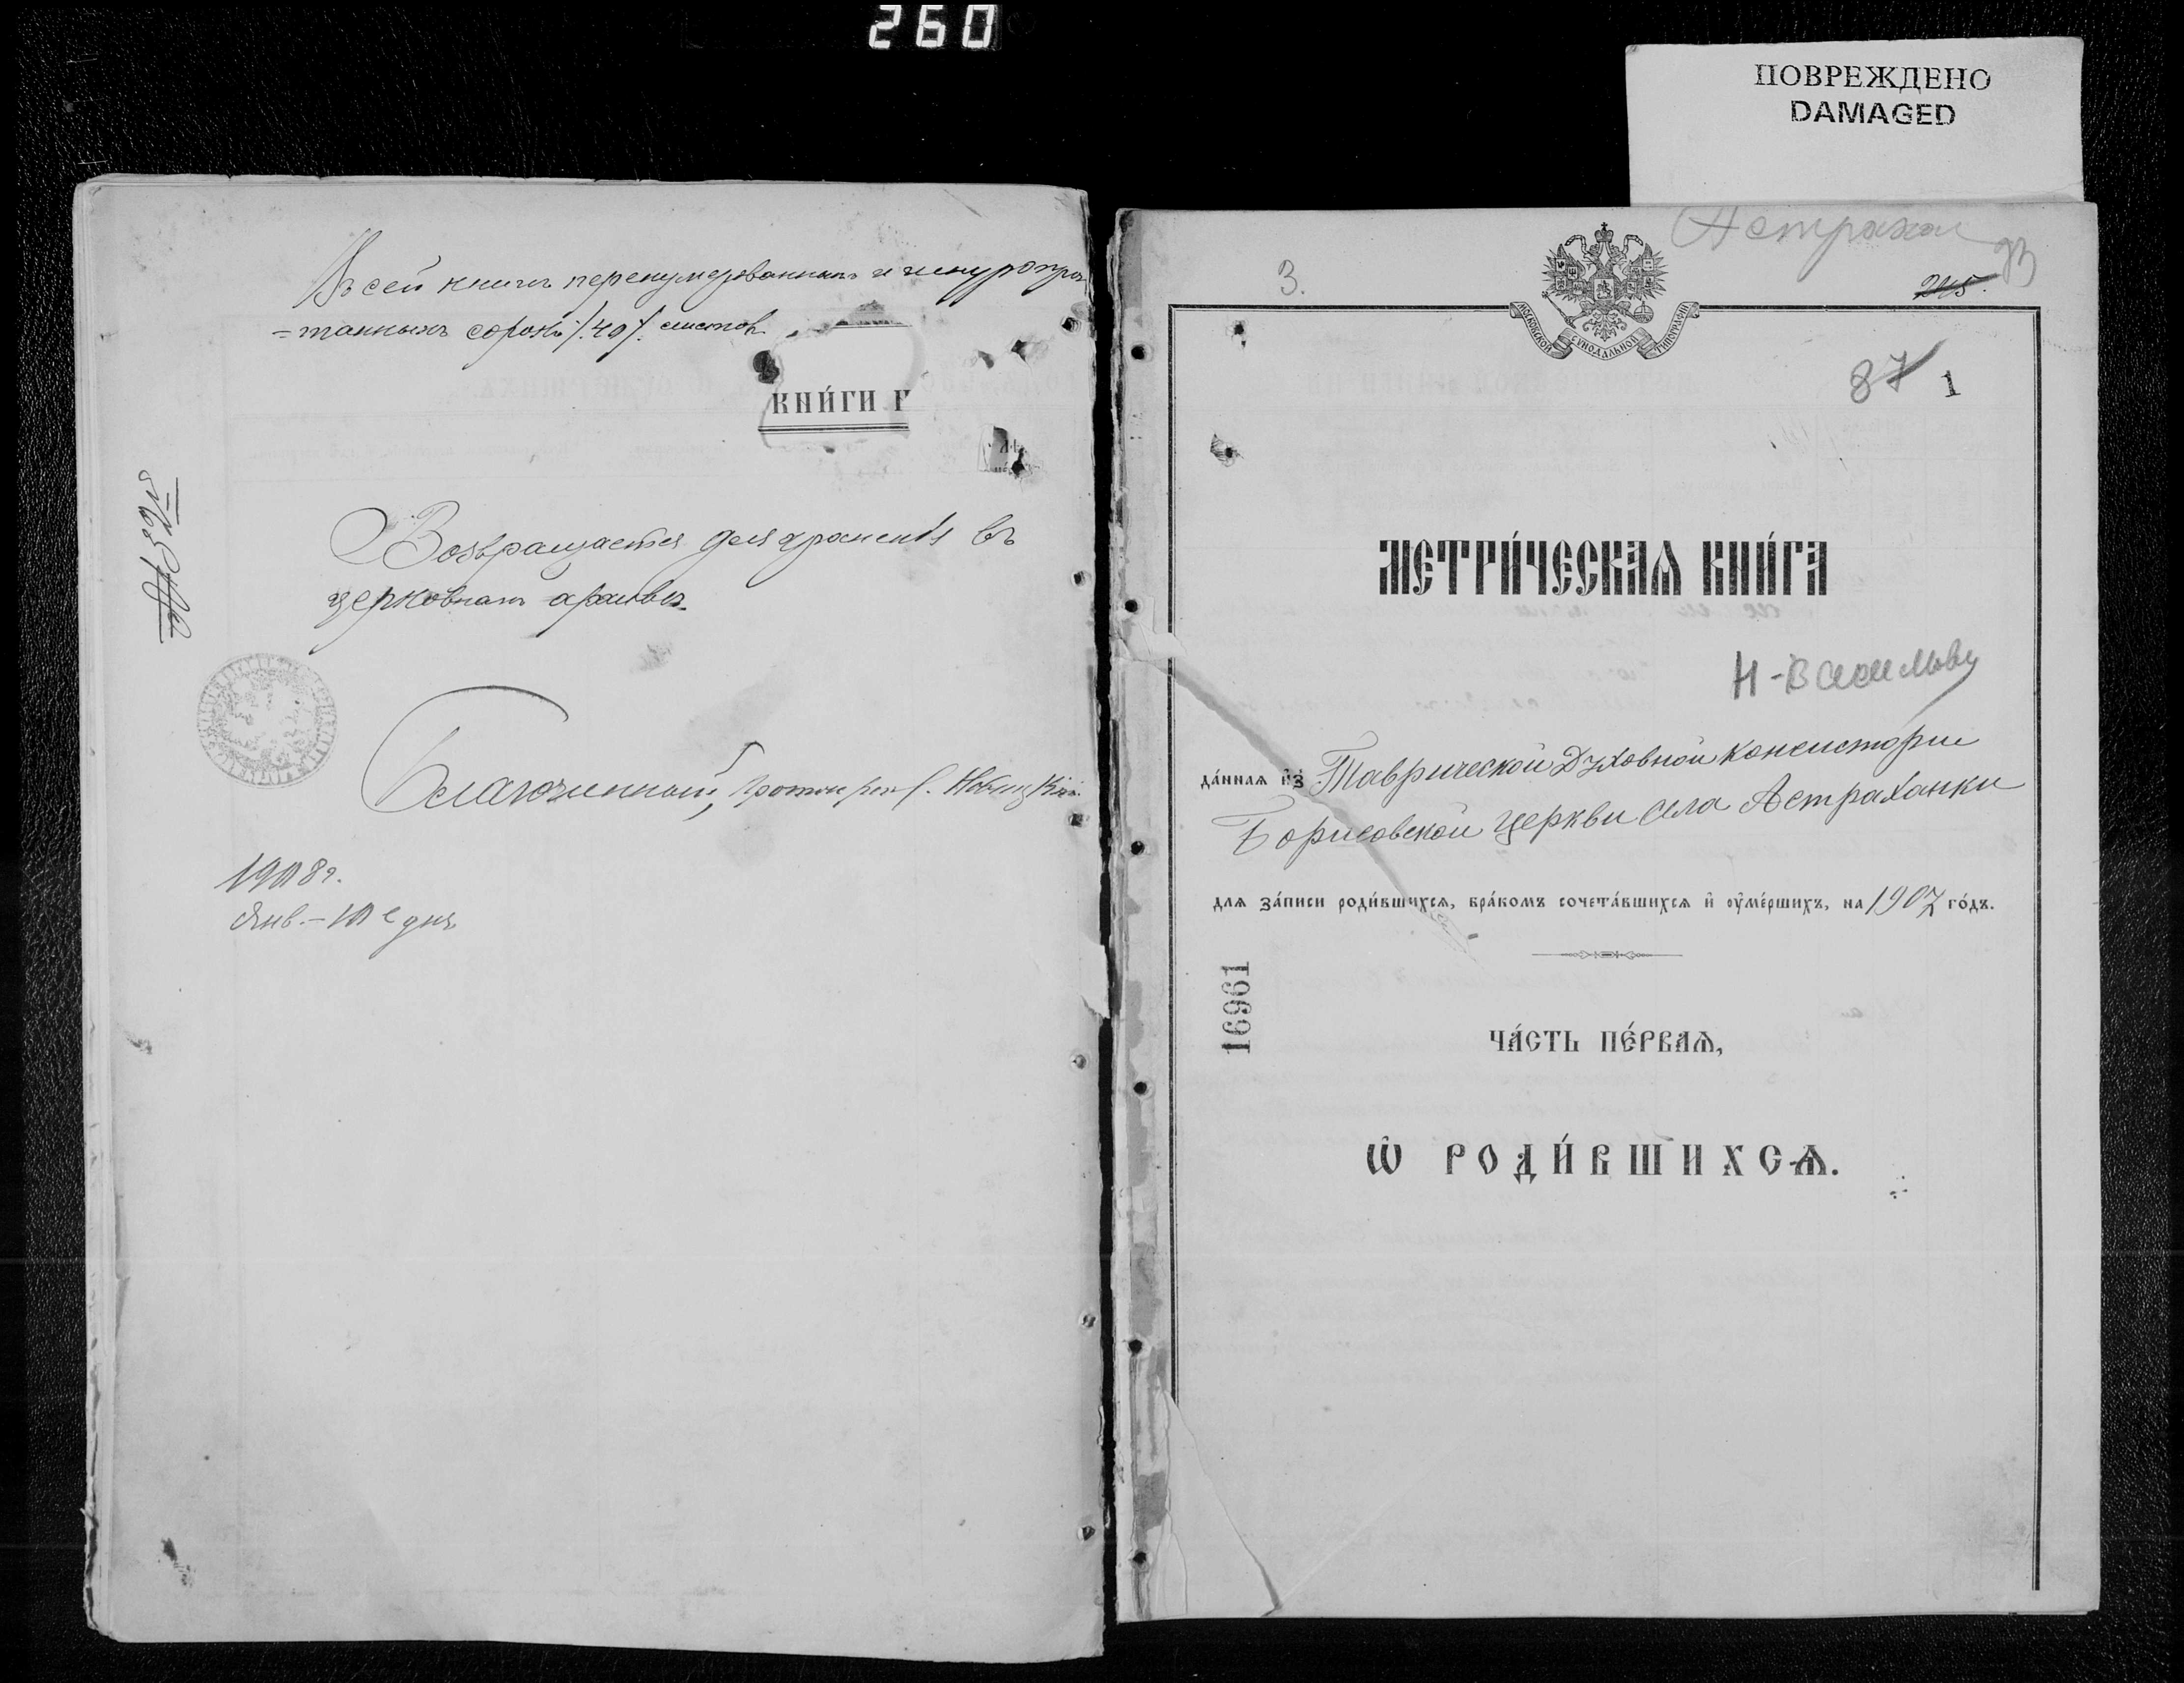 260
ПОВРЕЖДЕНО
DAMAGED
Въ сей книгѣ перенумерованныхъ и шнуропри
=танныхъ сорокъ /.40/. листовъ
КНИ́ГИ Г
Возвращается для храненія въ
церковномъ архивѣ.
Благочинный, протоіерей С. Новицкій
1908 г.
Янв. – 10 е дня
Астрахан
93
3.
245.
МОСКОВСКОЙ СѴНОДАЛЬНОЙ ТИПОГРАФІИ
87 1
МЕТРИ́ЧЕСКАѦ КНИ́ГА
Н-Васильев
да́ннаѧ и҆з̾ Таврической Духовной Консисторіи
Борисовской церкви села Астраханки
длѧ за́писи роди́вшихсѧ, бра́комъ сочета́вшихсѧ и҆ оу҆ме́ршихъ, на 1907 го́дъ.
16961
ЧА́СТЬ ПЕ́РВАѦ,
Ѽ РОДИ́ВШИХСѦ.